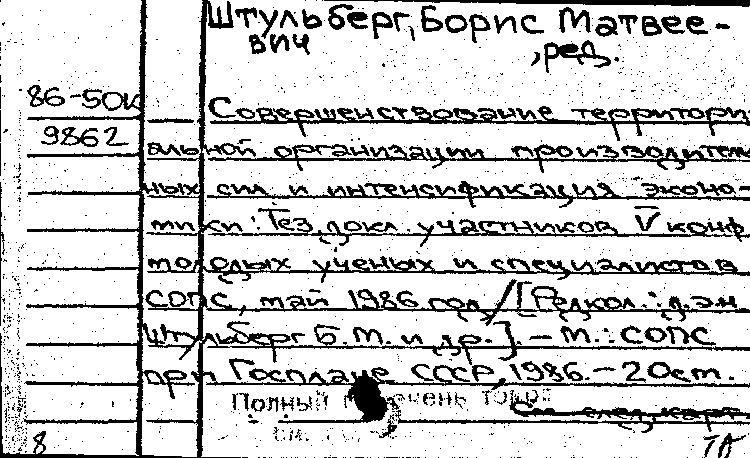 Штульберг, Борис Матвее-
вич
, ред.
86-50к
9862
Совершенствование территори
альной организации производитель
ных сил и интенсификация эконо-
мики: Тез. докл. участников V конф
молодых ученых и специалистов
СОПС, май 1986 год / [Редкол.: д.э.н
Штульберг Б.М. и др.]. – М.: СОПС
при Госплане СССР, 1986. – 20 см.
Полный
см.
8